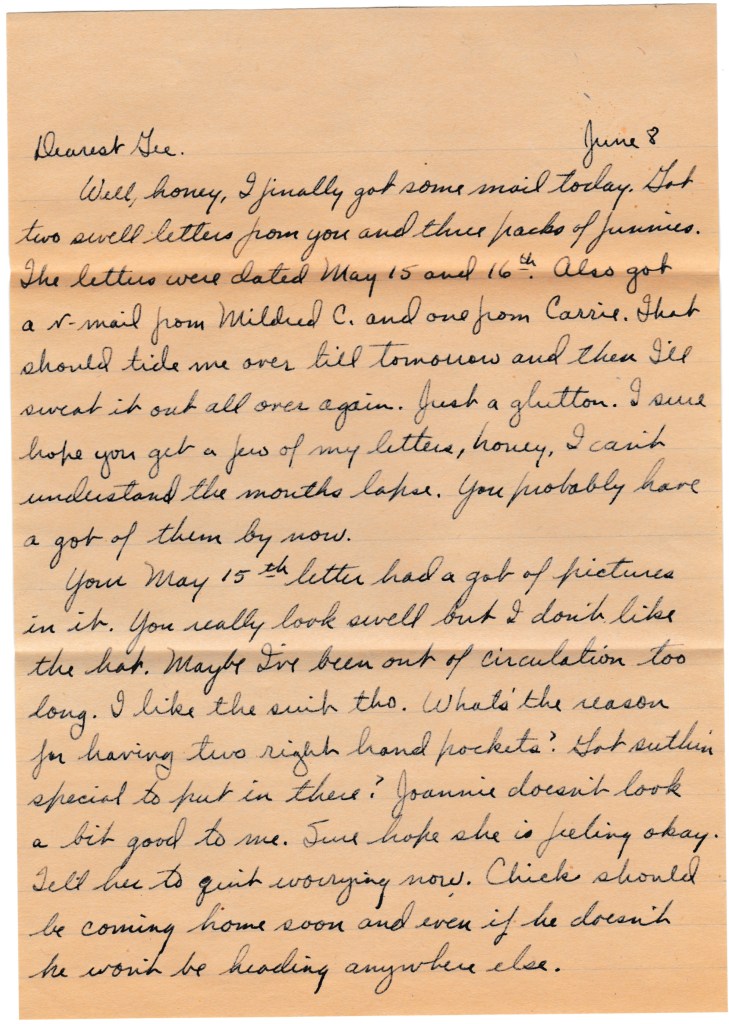 Dearest Gee. June 8
Well, honey, I finally got some mail today. Got
two swell letters from you and three packs of funnies.
The letters were dated May 15 and 16th. Also got
a v-mail from Mildred C. and one from Carrie. That
should tide me over till tomorrow and then I'll
sweat it out all over again. Just a glutton. I sure
hope you get a few of my letters, honey, I can't
understand the months lapse. You probably have
a gob of them by now.
Your May 15th letter had a gob of pictures
in it. You really look swell but I don't like
the hat. Maybe I've been out of circulation too
long. I like the suit tho. Whats' the reason
for having two right hand pockets? Got suthin
special to put in there? Joannie doesn't look
a bit good to me. Sure hope she is feeling okay.
Tell her to quit worrying now. Chick should
be coming home soon and even if he doesn't
he won't be heading anywhere else.